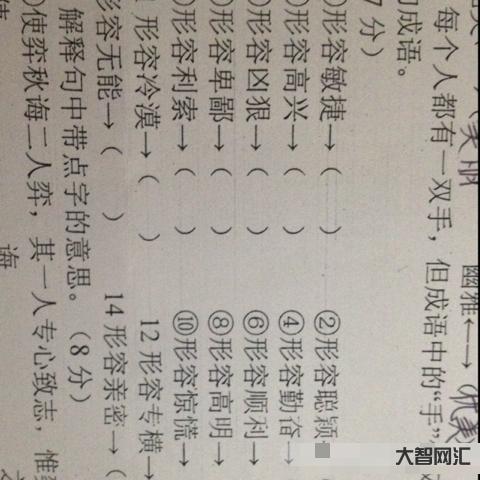 (美丽) 幽雅←→(优美
每个人都有一双手,但成语中的“手”
成语。
7分)
)形容敏捷→( ) ②形容聪颖
)形容高兴→( ) ④形容勤奋→
)形容凶狠→( ) ⑥形容顺利→(
)形容卑鄙→( ) ⑧形容高明→(
)形容利索→( ) ⑩形容惊慌→
形容冷漠→( ) 12 形容专横→
形容无能→( ) 14 形容亲密→(
解释句中带点字的意思。(8分)
)使弈秋诲二人弈,其一人专心致志,惟
诲
大智网汇